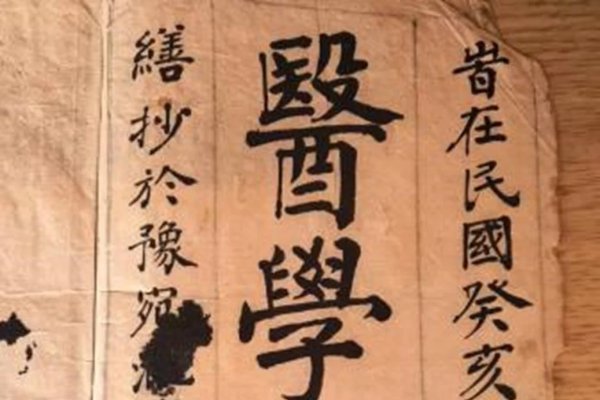 旹在民國癸亥
醫學
繕抄於豫宛